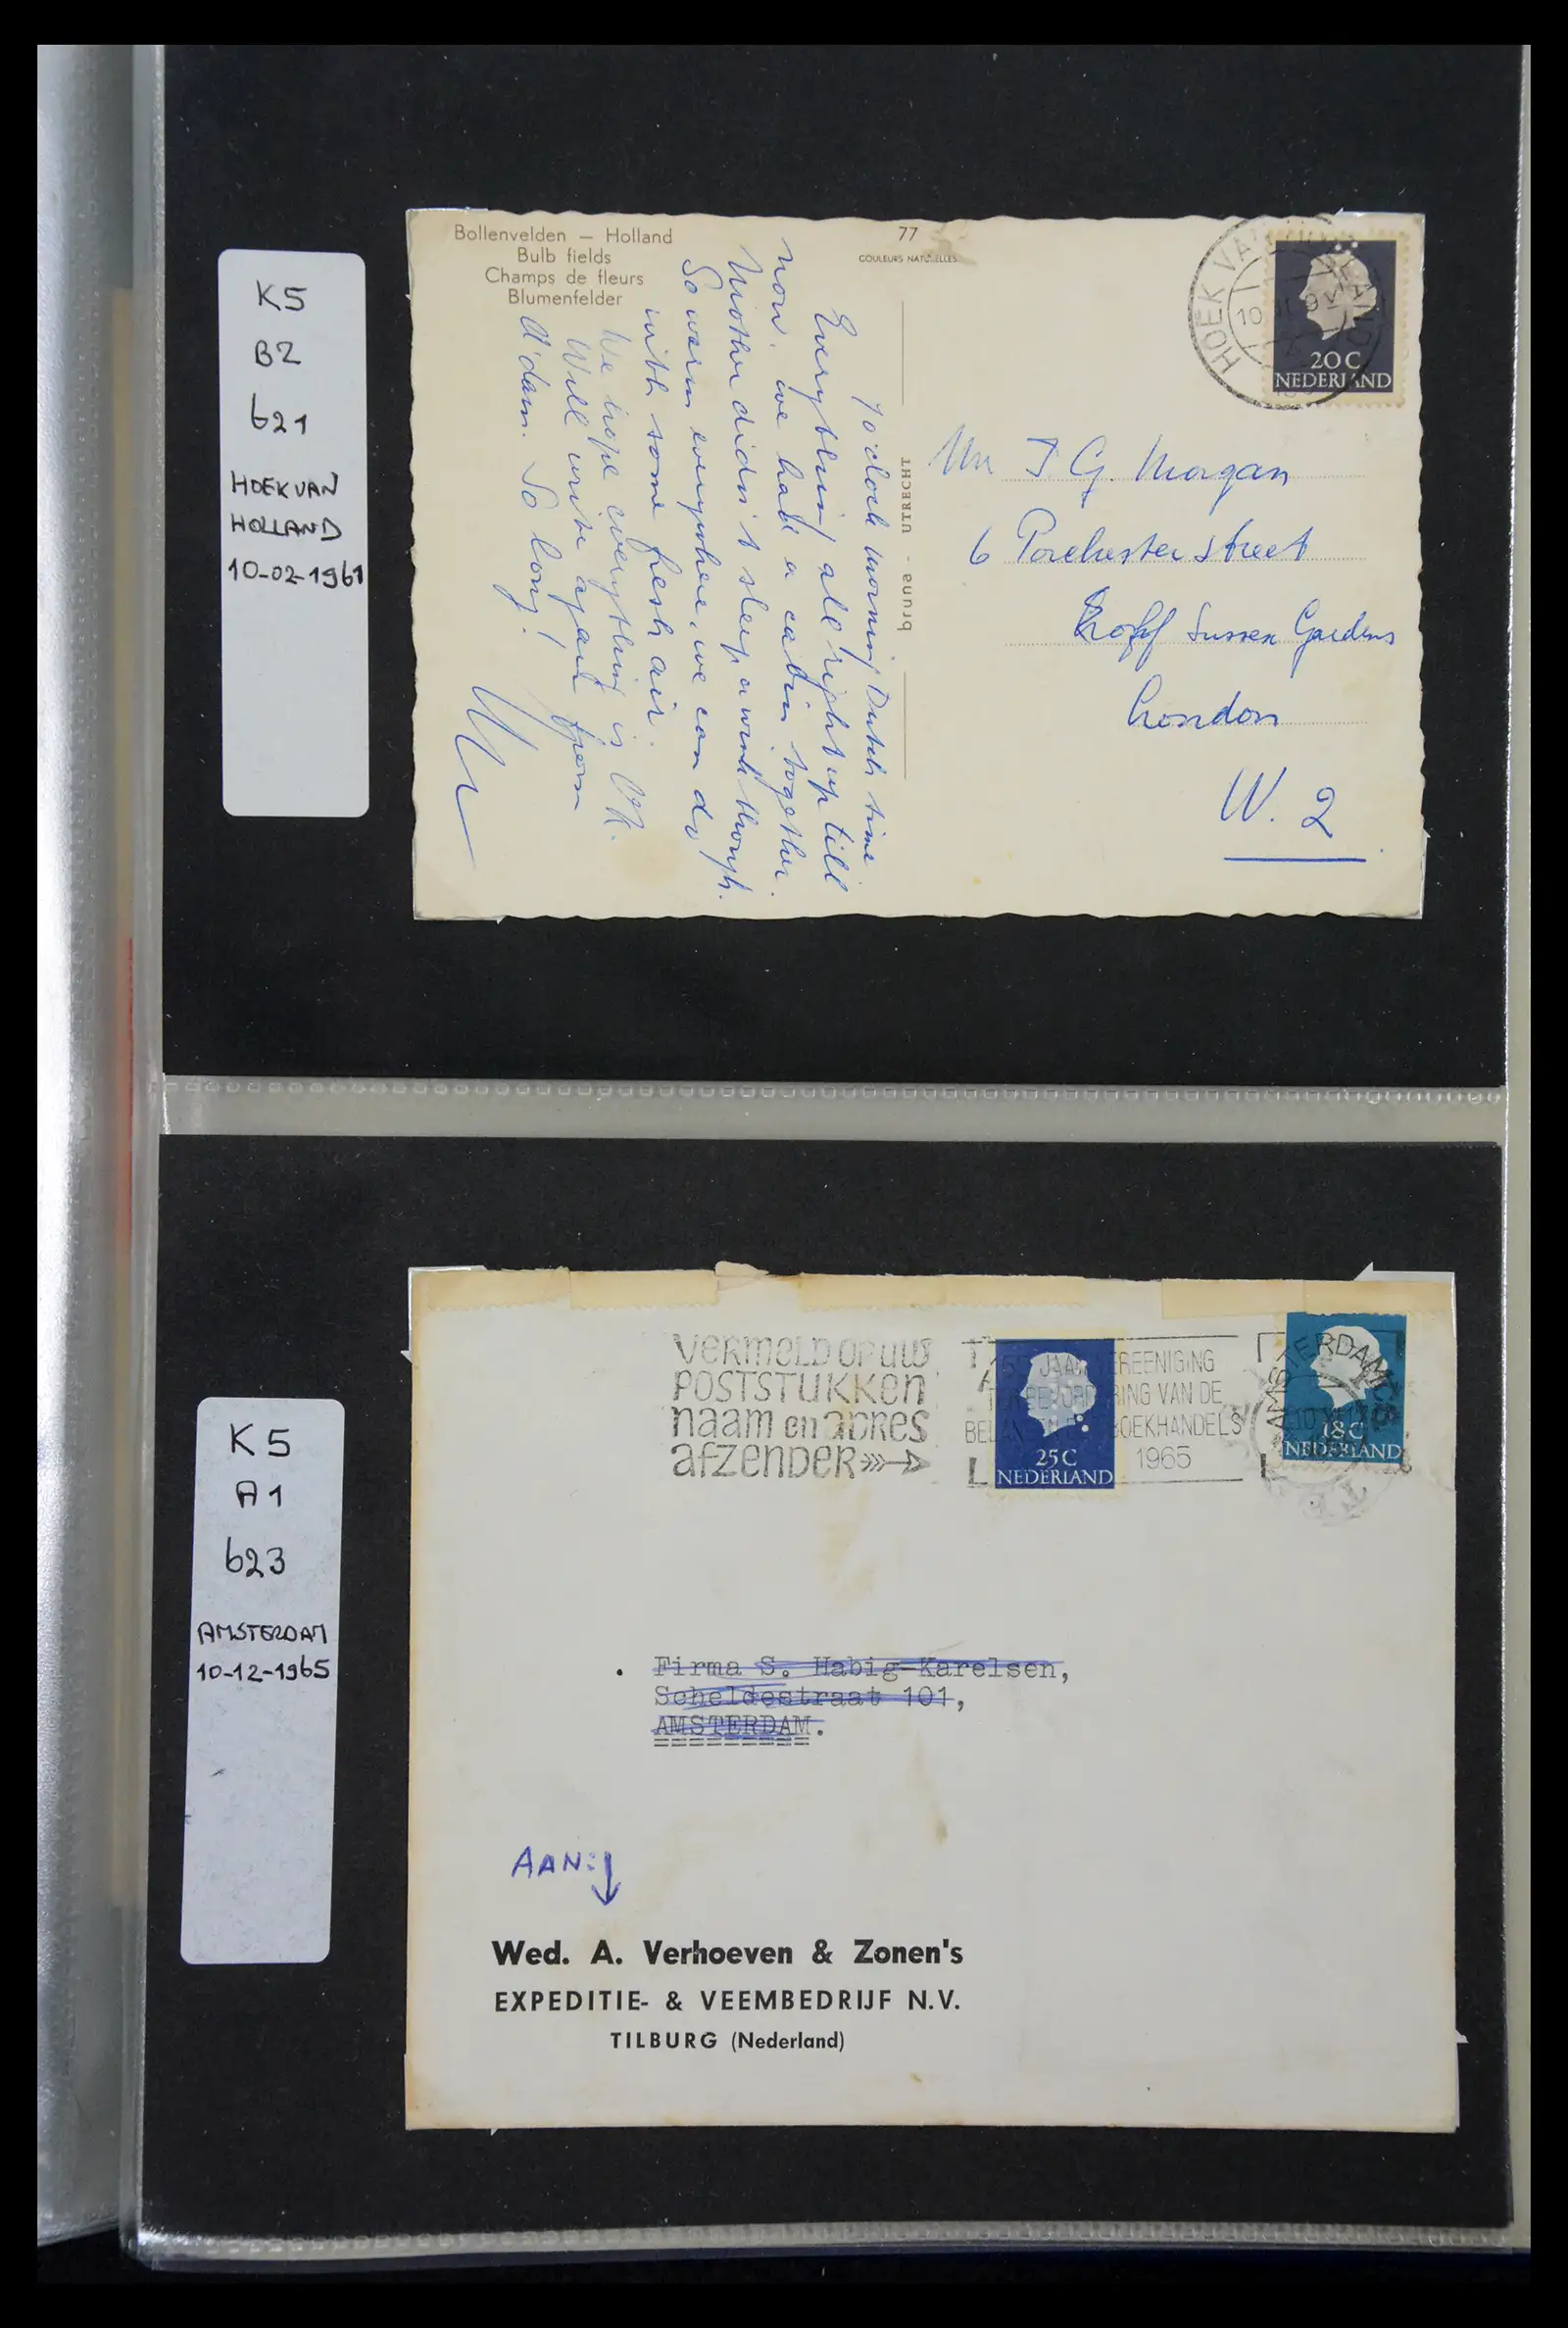 K5
B2
621
HOEK VAN
HOLLAND
10-02-1961
Bollenvelden — Holland
Bulb fields
Champs de fleurs
Blumenfelder
77
COULEURS NATURELLES
bruna - UTRECHT
7 o'clock morning Dutch time
Everything all right up till
now. we have a cabin together.
Mother didn't sleep a wink though.
So warm everywhere, we can do
with some fresh air.
We hope everything is O.K.
Will write again from
A'dam. So long!
HOEK VAN
10 II 9
20 C
NEDERLAND
Mr J G. Morgan
6 Porchester Street
off Sussex Gardens
London
W. 2
K5
A1
623
AMSTERDAM
10-12-1965
VERMELD OP UW
POSTSTUKKEN
naam en adres
afzender
JAAR VEREENIGING
TER BEVORDERING VAN DE
BELANGEN BOEKHANDELS
1965
25 C
NEDERLAND
AMSTERDAM CS
18 C
NEDERLAND
Firma S. Habig-Karelsen,
Scheldestraat 101,
AMSTERDAM.
AAN:
Wed. A. Verhoeven & Zonen's
EXPEDITIE- & VEEMBEDRIJF N.V.
TILBURG (Nederland)